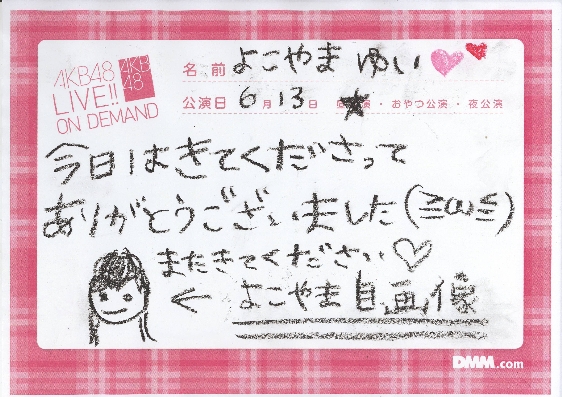 AKB48
LIVE!!
ON DEMAND
AKB
48
名前 よこやま ゆい
公演日 6月13日 ★ 演・おやつ公演・夜公演
今日はきてくださって
ありがとうございました(≧ω≦)
またきてください♡
← よこやま自画像
DMM.com